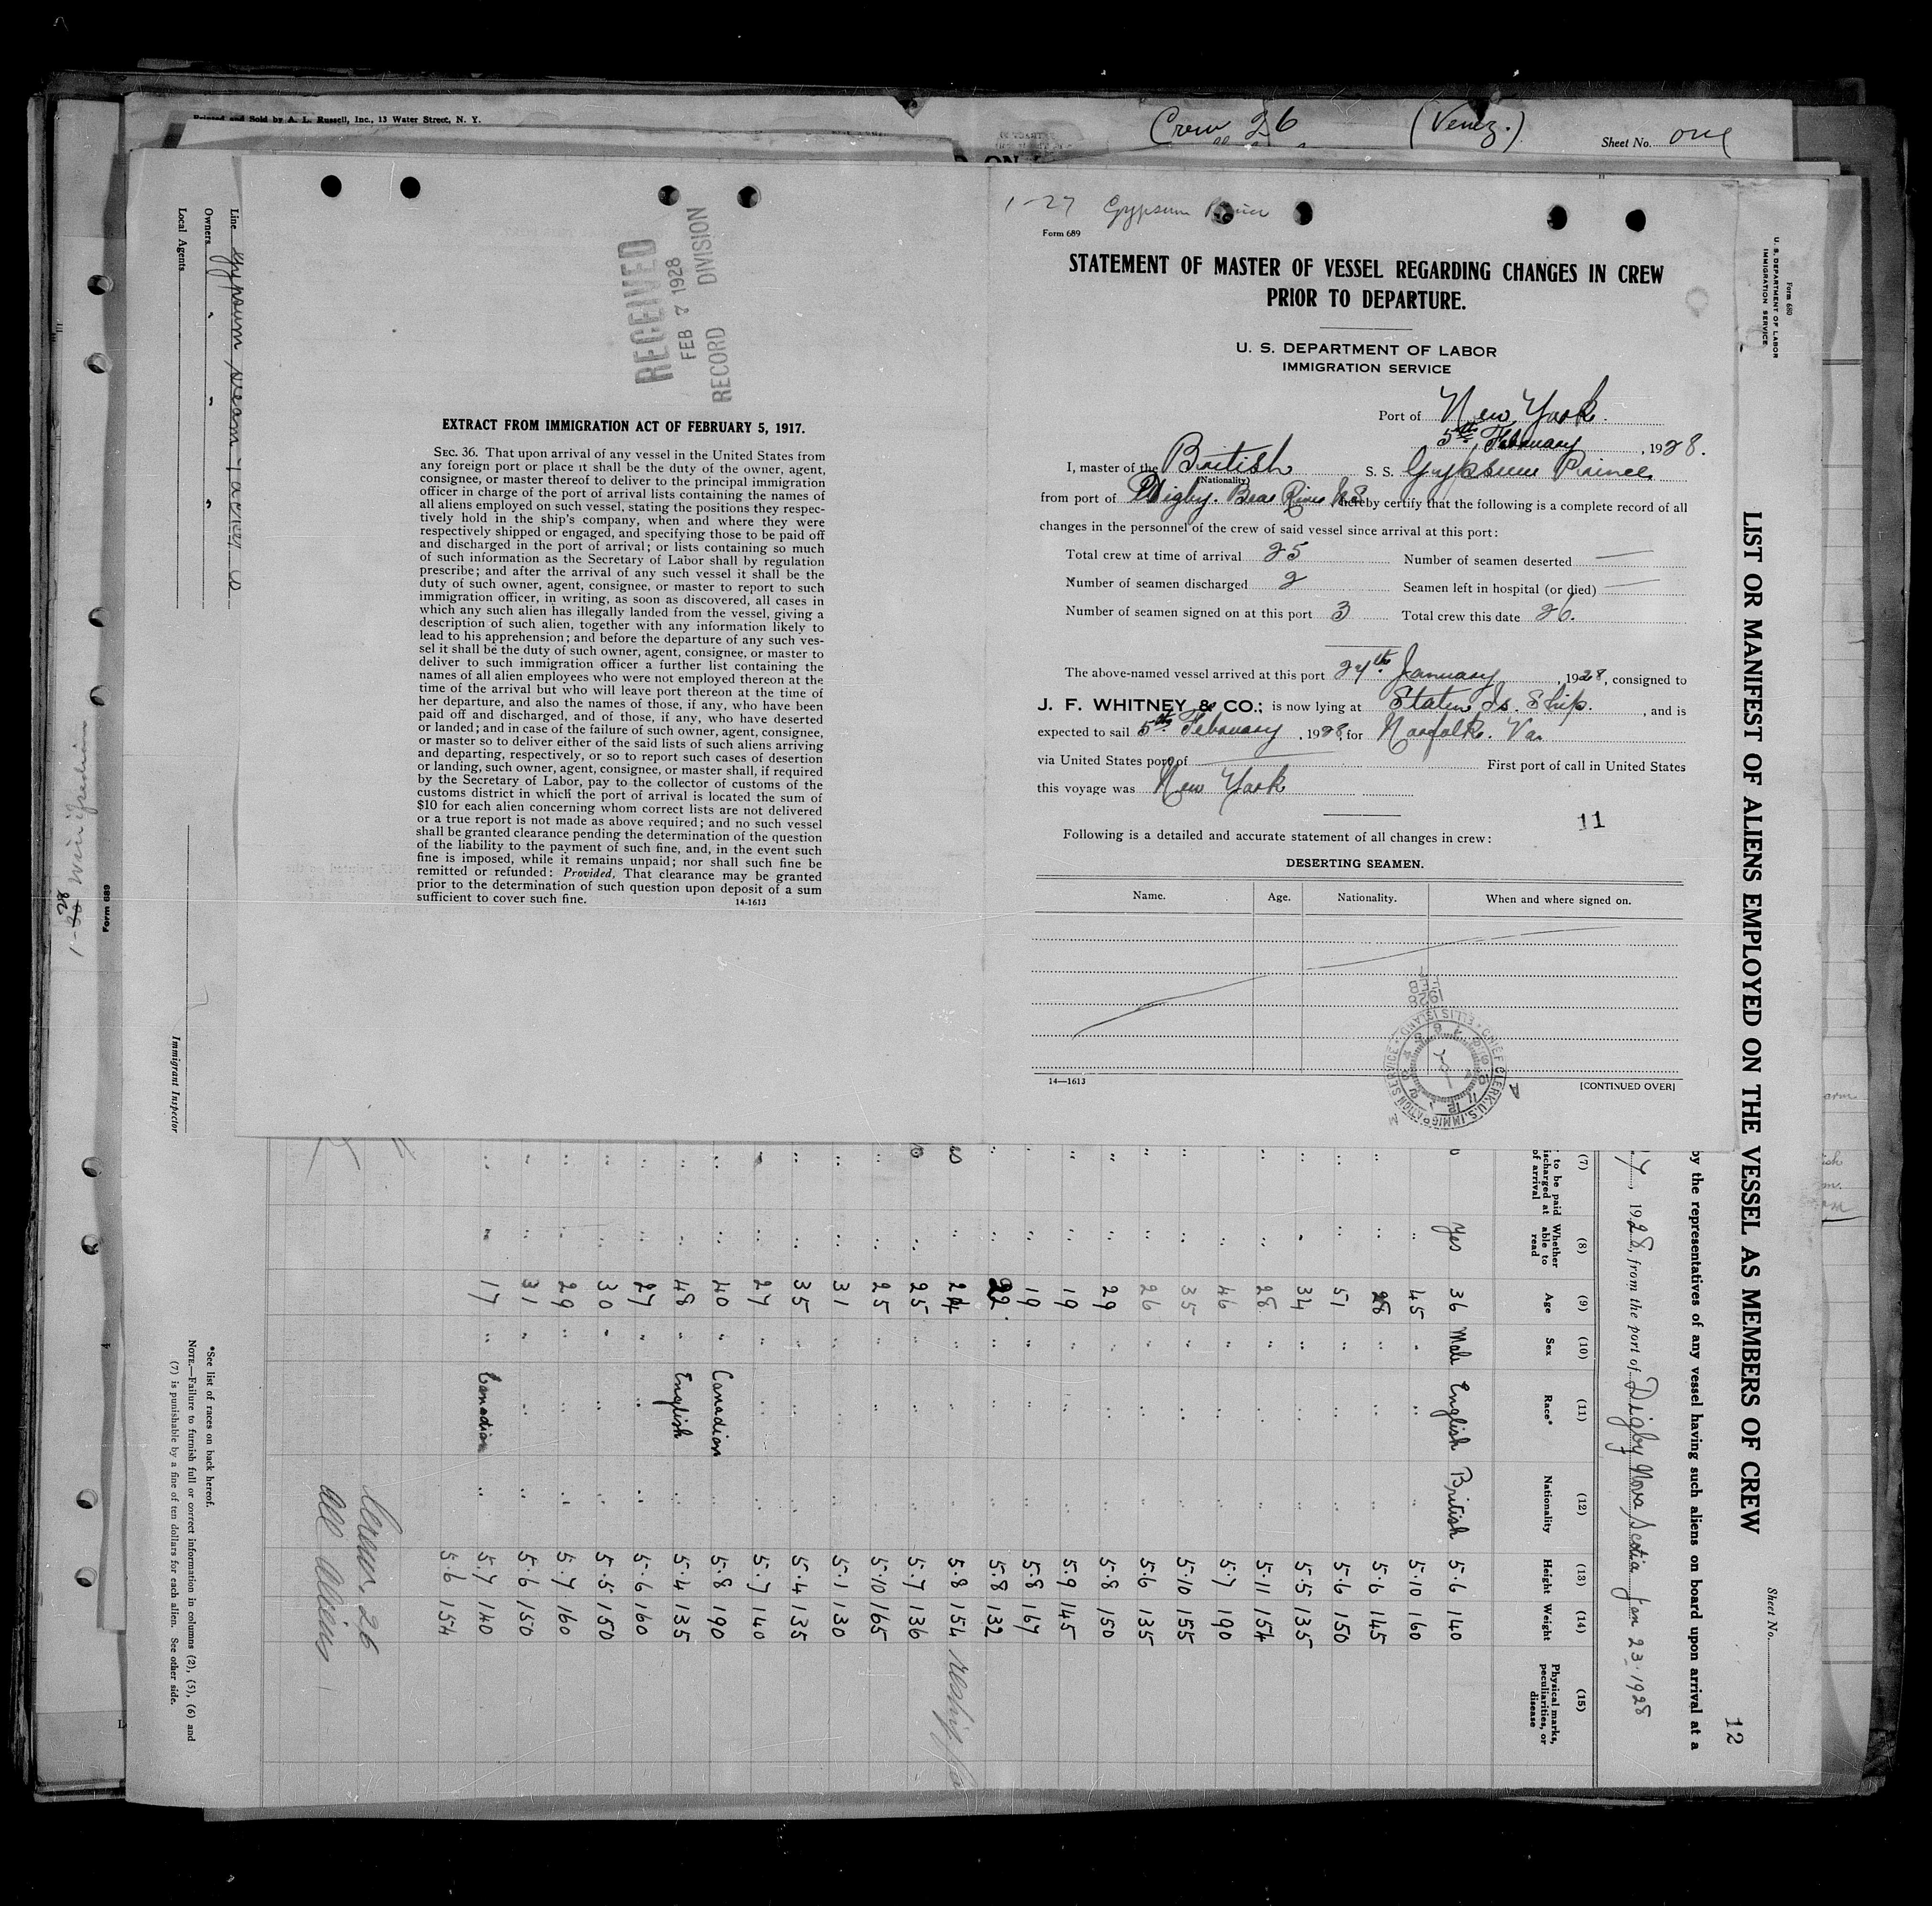 Printed and Sold by A. L. Russell, Inc., 13 Water Street, N. Y.
Crew 26 (Venez.)
Sheet No. one
Line Gypsum
Owners " " "
Local Agents
Immigrant Inspector
RECEIVED
FEB 7 1928
RECORD DIVISION
EXTRACT FROM IMMIGRATION ACT OF FEBRUARY 5, 1917.
SEC. 36. That upon arrival of any vessel in the United States from
any foreign port or place it shall be the duty of the owner, agent,
consignee, or master thereof to deliver to the principal immigration
officer in charge of the port of arrival lists containing the names of
all aliens employed on such vessel, stating the positions they respec-
tively hold in the ship's company, when and where they were
respectively shipped or engaged, and specifying those to be paid off
and discharged in the port of arrival; or lists containing so much
of such information as the Secretary of Labor shall by regulation
prescribe; and after the arrival of any such vessel it shall be the
duty of such owner, agent, consignee, or master to report to such
immigration officer, in writing, as soon as discovered, all cases in
which any such alien has illegally landed from the vessel, giving a
description of such alien, together with any information likely to
lead to his apprehension; and before the departure of any such ves-
sel it shall be the duty of such owner, agent, consignee, or master to
deliver to such immigration officer a further list containing the
names of all alien employees who were not employed thereon at the
time of the arrival but who will leave port thereon at the time of
her departure, and also the names of those, if any, who have been
paid off and discharged, and of those, if any, who have deserted
or landed; and in case of the failure of such owner, agent, consignee,
or master so to deliver either of the said lists of such aliens arriving
and departing, respectively, or so to report such cases of desertion
or landing, such owner, agent, consignee, or master shall, if required
by the Secretary of Labor, pay to the collector of customs of the
customs district in which the port of arrival is located the sum of
$10 for each alien concerning whom correct lists are not delivered
or a true report is not made as above required; and no such vessel
shall be granted clearance pending the determination of the question
of the liability to the payment of such fine, and, in the event such
fine is imposed, while it remains unpaid; nor shall such fine be
remitted or refunded: Provided, That clearance may be granted
prior to the determination of such question upon deposit of a sum
sufficient to cover such fine.
14-1613
1-27 Gypsum Prince
Form 689
STATEMENT OF MASTER OF VESSEL REGARDING CHANGES IN CREW
PRIOR TO DEPARTURE.
U. S. DEPARTMENT OF LABOR
IMMIGRATION SERVICE
Port of New York.
5th February, 1928.
I, master of the British S. S. Gypsum Prince
(Nationality)
from port of Digby. Bear River N.S. hereby certify that the following is a complete record of all
changes in the personnel of the crew of said vessel since arrival at this port:
Total crew at time of arrival 25 Number of seamen deserted —
Number of seamen discharged 2 Seamen left in hospital (or died) —
Number of seamen signed on at this port 3 Total crew this date 26.
The above-named vessel arrived at this port 27th January, 1928, consigned to
J. F. WHITNEY & CO.; is now lying at Staten Is. Ship., and is
expected to sail 5th February, 1928, for Norfolk. Va.
via United States port of — First port of call in United States
this voyage was New York
11
Following is a detailed and accurate statement of all changes in crew:
DESERTING SEAMEN.
Name. Age. Nationality. When and where signed on.
1928
FEB
CHIEF CLERK, U.S. IMMIGRATION SERVICE • ELLIS ISLAND
14—1613
[CONTINUED OVER]
Form 680
U. S. DEPARTMENT OF LABOR
IMMIGRATION SERVICE
LIST OR MANIFEST OF ALIENS EMPLOYED ON THE VESSEL AS MEMBERS OF CREW
Sheet No.
12
by the representatives of any vessel having such aliens on board upon arrival at a
, 1928, from the port of Digby Nova Scotia Jan 23. 1928
(7) (8) (9) (10) (11) (12) (13) (14) (15)
to be paid
discharged at
of arrival
Whether
able to
read
Age
Sex
Race*
Nationality
Height
Weight
Physical marks,
peculiarities, or
disease
Yes 36 Male English British 5.6 140
" 45 " " " 5.10 160
" 28 " " " 5.6 145
" 51 " " " 5.6 150
" 34 " " " 5.5 135
" 28 " " " 5.11 154
" 46 " " " 5.7 190
" 35 " " " 5.10 155
" 26 " " " 5.6 135
" 29 " " " 5.8 150
" 19 " " " 5.9 145
" 19 " " " 5.8 167
" 22 " " " 5.8 132
" 24 " " " 5.8 154
" 25 " " " 5.7 136
" 25 " " " 5.10 165
" 31 " " " 5.1 130
" 35 " " " 5.4 135
" 27 " " " 5.7 140
" 40 " Canadian " 5.8 190
" 48 " English " 5.4 135
" 27 " " " 5.6 160
" 30 " " " 5.5 150
" 29 " " " 5.7 160
" 31 " " " 5.6 150
" 17 " Canadian " 5.7 140
5.6 154
Crew. 26
All Aliens
*See list of races on back hereof.
NOTE.—Failure to furnish full or correct information in columns (2), (5), (6) and
(7) is punishable by a fine of ten dollars for each alien. See other side.
Form 689